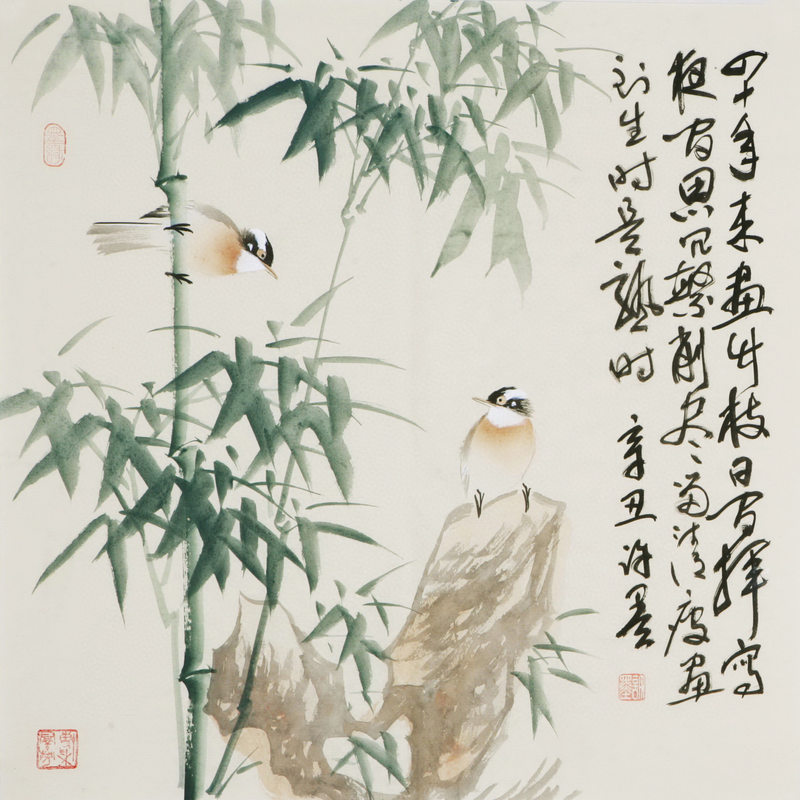 四十年来畫竹枝日间挥寫
夜间思冗繁削尽留清瘦畫
到生时是熟时 辛丑许墨